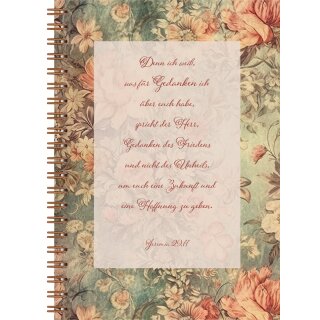 Denn ich weiß,
was für Gedanken ich
über euch habe,
spricht der Herr,
Gedanken des Friedens
und nicht des Unheils,
um euch eine Zukunft und
eine Hoffnung zu geben.
Jeremia 29,11